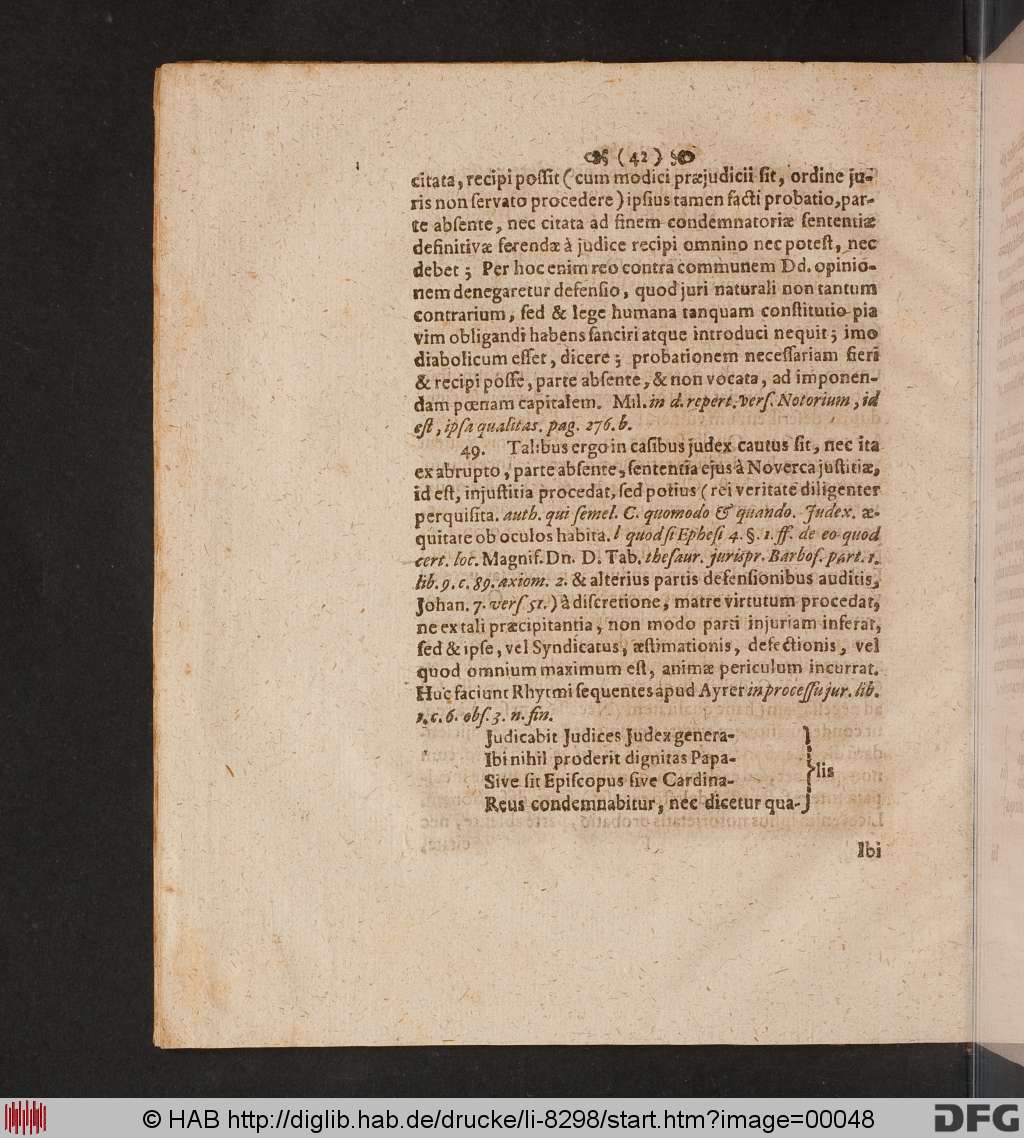 (42)
citata, recipi poſſit (cum modici præjudicii ſit, ordine ju-
ris non ſervato procedere) ipſius tamen facti probatio, par-
te abſente, nec citata ad finem condemnatoriæ ſententiæ
definitivæ ferendæ à judice recipi omnino nec poteſt, nec
debet; Per hoc enim reo contra communem Dd. opinio-
nem denegaretur defenſio, quod juri naturali non tantum
contrarium, ſed & lege humana tanquam conſtitutio pia
vim obligandi habens ſanciri atque introduci nequit; imo
diabolicum eſſet, dicere; probationem neceſſariam fieri
& recipi poſſe, parte abſente, & non vocata, ad imponen-
dam pœnam capitalem. Mil. in d. repert. verſ. Notorium, id
eſt, ipſa qualitas. pag. 276. b.
49. Talibus ergo in caſibus judex cautus ſit, nec ita
ex abrupto, parte abſente, ſententia ejus à Noverca juſtitiæ,
id eſt, injuſtitia procedat, ſed potius (rei veritate diligenter
perquiſita. auth. qui ſemel. C. quomodo & quando. Judex. æ-
quitate ob oculos habita. l quod ſi Epheſi 4. §. 1. ff. de eo quod
cert. loc. Magnif. Dn. D. Tab. theſaur. jurispr. Barboſ. part. 1.
lib. 9. c. 89. axiom. 2. & alterius partis defenſionibus auditis,
Johan. 7. verſ 51.) à diſcretione, matre virtutum procedat,
ne ex tali præcipitantia, non modo parti injuriam inferat,
ſed & ipſe, vel Syndicatus, æſtimationis, defectionis, vel
quod omnium maximum eſt, animæ periculum incurrat.
Huc faciunt Rhytmi ſequentes apud Ayrer in proceſſu jur. lib.
1. c. 6. obſ. 3. n. fin.
Judicabit Judices Judex genera-
Ibi nihil proderit dignitas Papa-
Sive ſit Epiſcopus ſive Cardina-
lis
Reus condemnabitur, nec dicetur qua-
Ibi
© HAB http://diglib.hab.de/drucke/li-8298/start.htm?image=00048
DFG